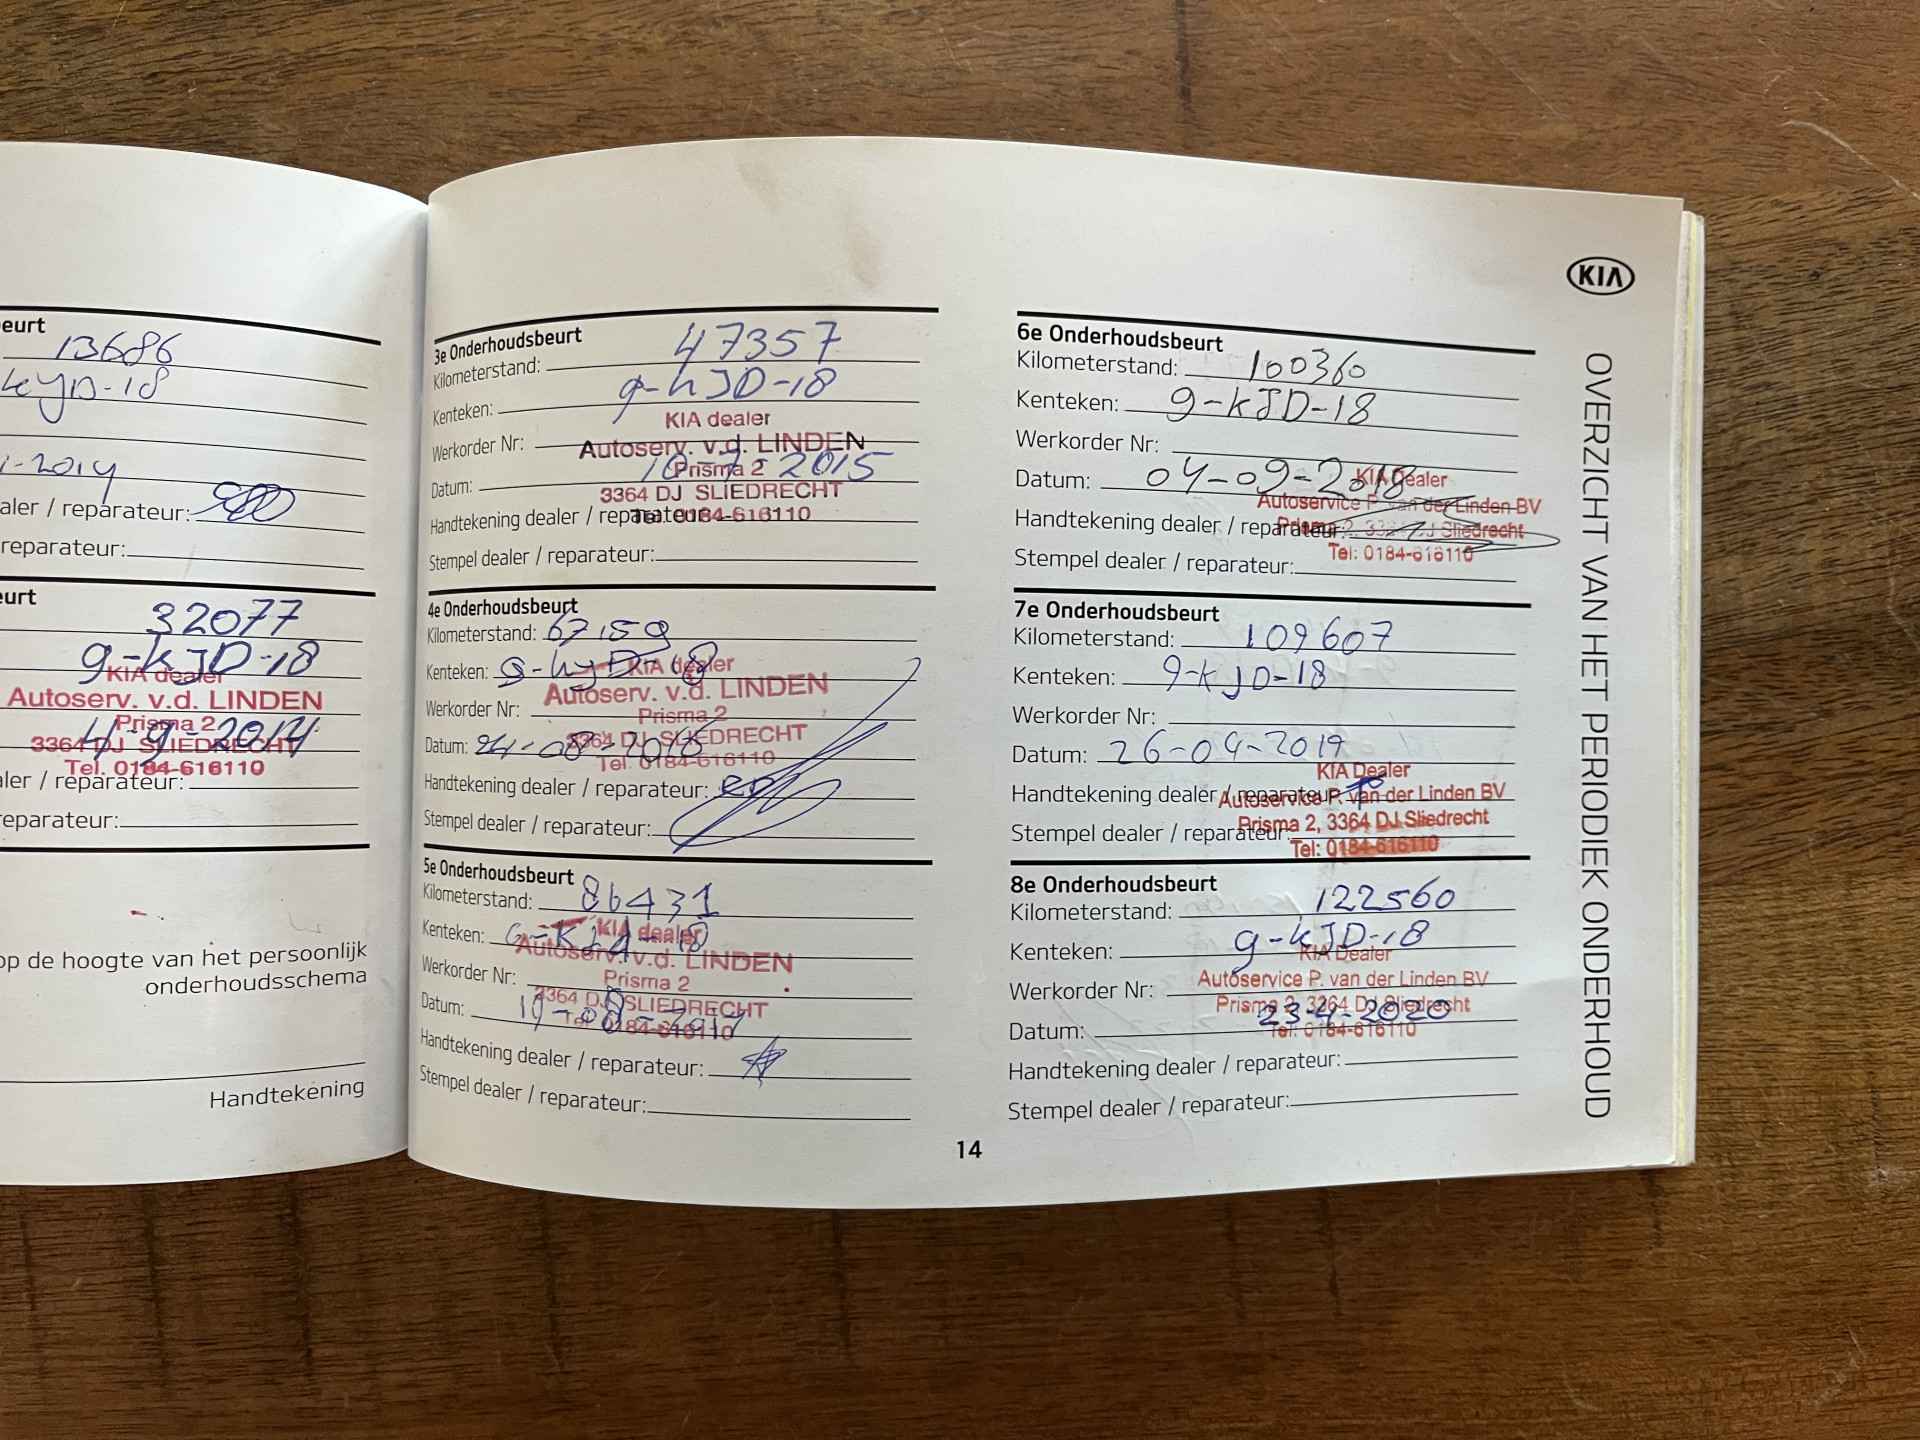 eurt
13686
kYJD-18
1-2014
aler / reparateur:
reparateur:
eurt
32077
9-KJD-18
KIA dealer
Autoserv. v.d. LINDEN
Prisma 2
4-9-2014
3364 DJ SLIEDRECHT
Tel. 0184-616110
aler / reparateur:
eparateur:
op de hoogte van het persoonlijk
onderhoudsschema
Handtekening
3e Onderhoudsbeurt
Kilometerstand: 47357
Kenteken: 9-KJD-18
KIA dealer
Werkorder Nr:
Autoserv. v.d. LINDEN
Prisma 2
Datum: 10-7-2015
3364 DJ SLIEDRECHT
Handtekening dealer / reparateur:
Tel. 0184-616110
Stempel dealer / reparateur:
4e Onderhoudsbeurt
Kilometerstand: 67159
Kenteken: 9-kJD-18
KIA dealer
Autoserv. v.d. LINDEN
Werkorder Nr:
Prisma 2
Datum: 24-08-2016
3364 DJ SLIEDRECHT
Tel. 0184-616110
Handtekening dealer / reparateur:
Stempel dealer / reparateur:
5e Onderhoudsbeurt
Kilometerstand: 86431
Kenteken: G-KJD-18
KIA dealer
Autoserv. v.d. LINDEN
Werkorder Nr:
Prisma 2
3364 DJ SLIEDRECHT
Datum: 19-08-2017
Tel. 0184-616110
Handtekening dealer / reparateur:
Stempel dealer / reparateur:
14
6e Onderhoudsbeurt
Kilometerstand: 100360
Kenteken: 9-KJD-18
Werkorder Nr:
Datum: 04-09-2018
KIA Dealer
Autoservice P. van der Linden BV
Handtekening dealer / reparateur:
Prisma 2, 3364 DJ Sliedrecht
Tel: 0184-616110
Stempel dealer / reparateur:
7e Onderhoudsbeurt
Kilometerstand: 109607
Kenteken: 9-KJD-18
Werkorder Nr:
Datum: 26-04-2019
KIA Dealer
Handtekening dealer / reparateur:
Autoservice P. van der Linden BV
Prisma 2, 3364 DJ Sliedrecht
Stempel dealer / reparateur:
Tel: 0184-616110
8e Onderhoudsbeurt
Kilometerstand: 122560
Kenteken: 9-KJD-18
KIA Dealer
Autoservice P. van der Linden BV
Werkorder Nr:
Prisma 2, 3264 DJ Sliedrecht
Datum: 23-4-2020
Tel: 0184-616110
Handtekening dealer / reparateur:
Stempel dealer / reparateur:
KIA
OVERZICHT VAN HET PERIODIEK ONDERHOUD